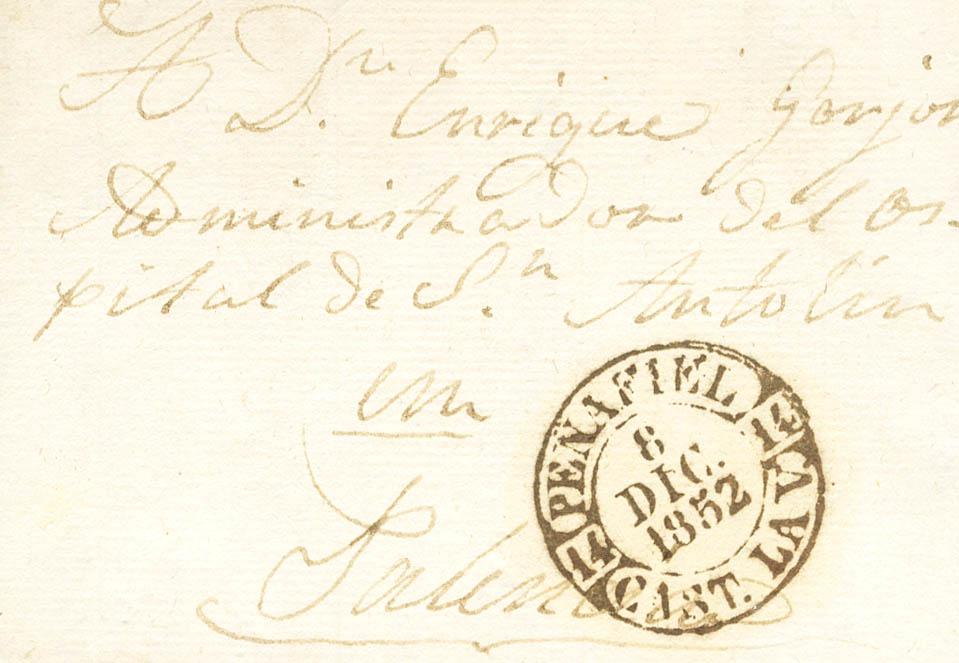 A Dn. Enrique Gorjon
Administrador del Os-
pital de Sn. Antolin
en
Palencia
PEÑAFIEL
14
14
CAST. LA V.
8
DIC.
1852